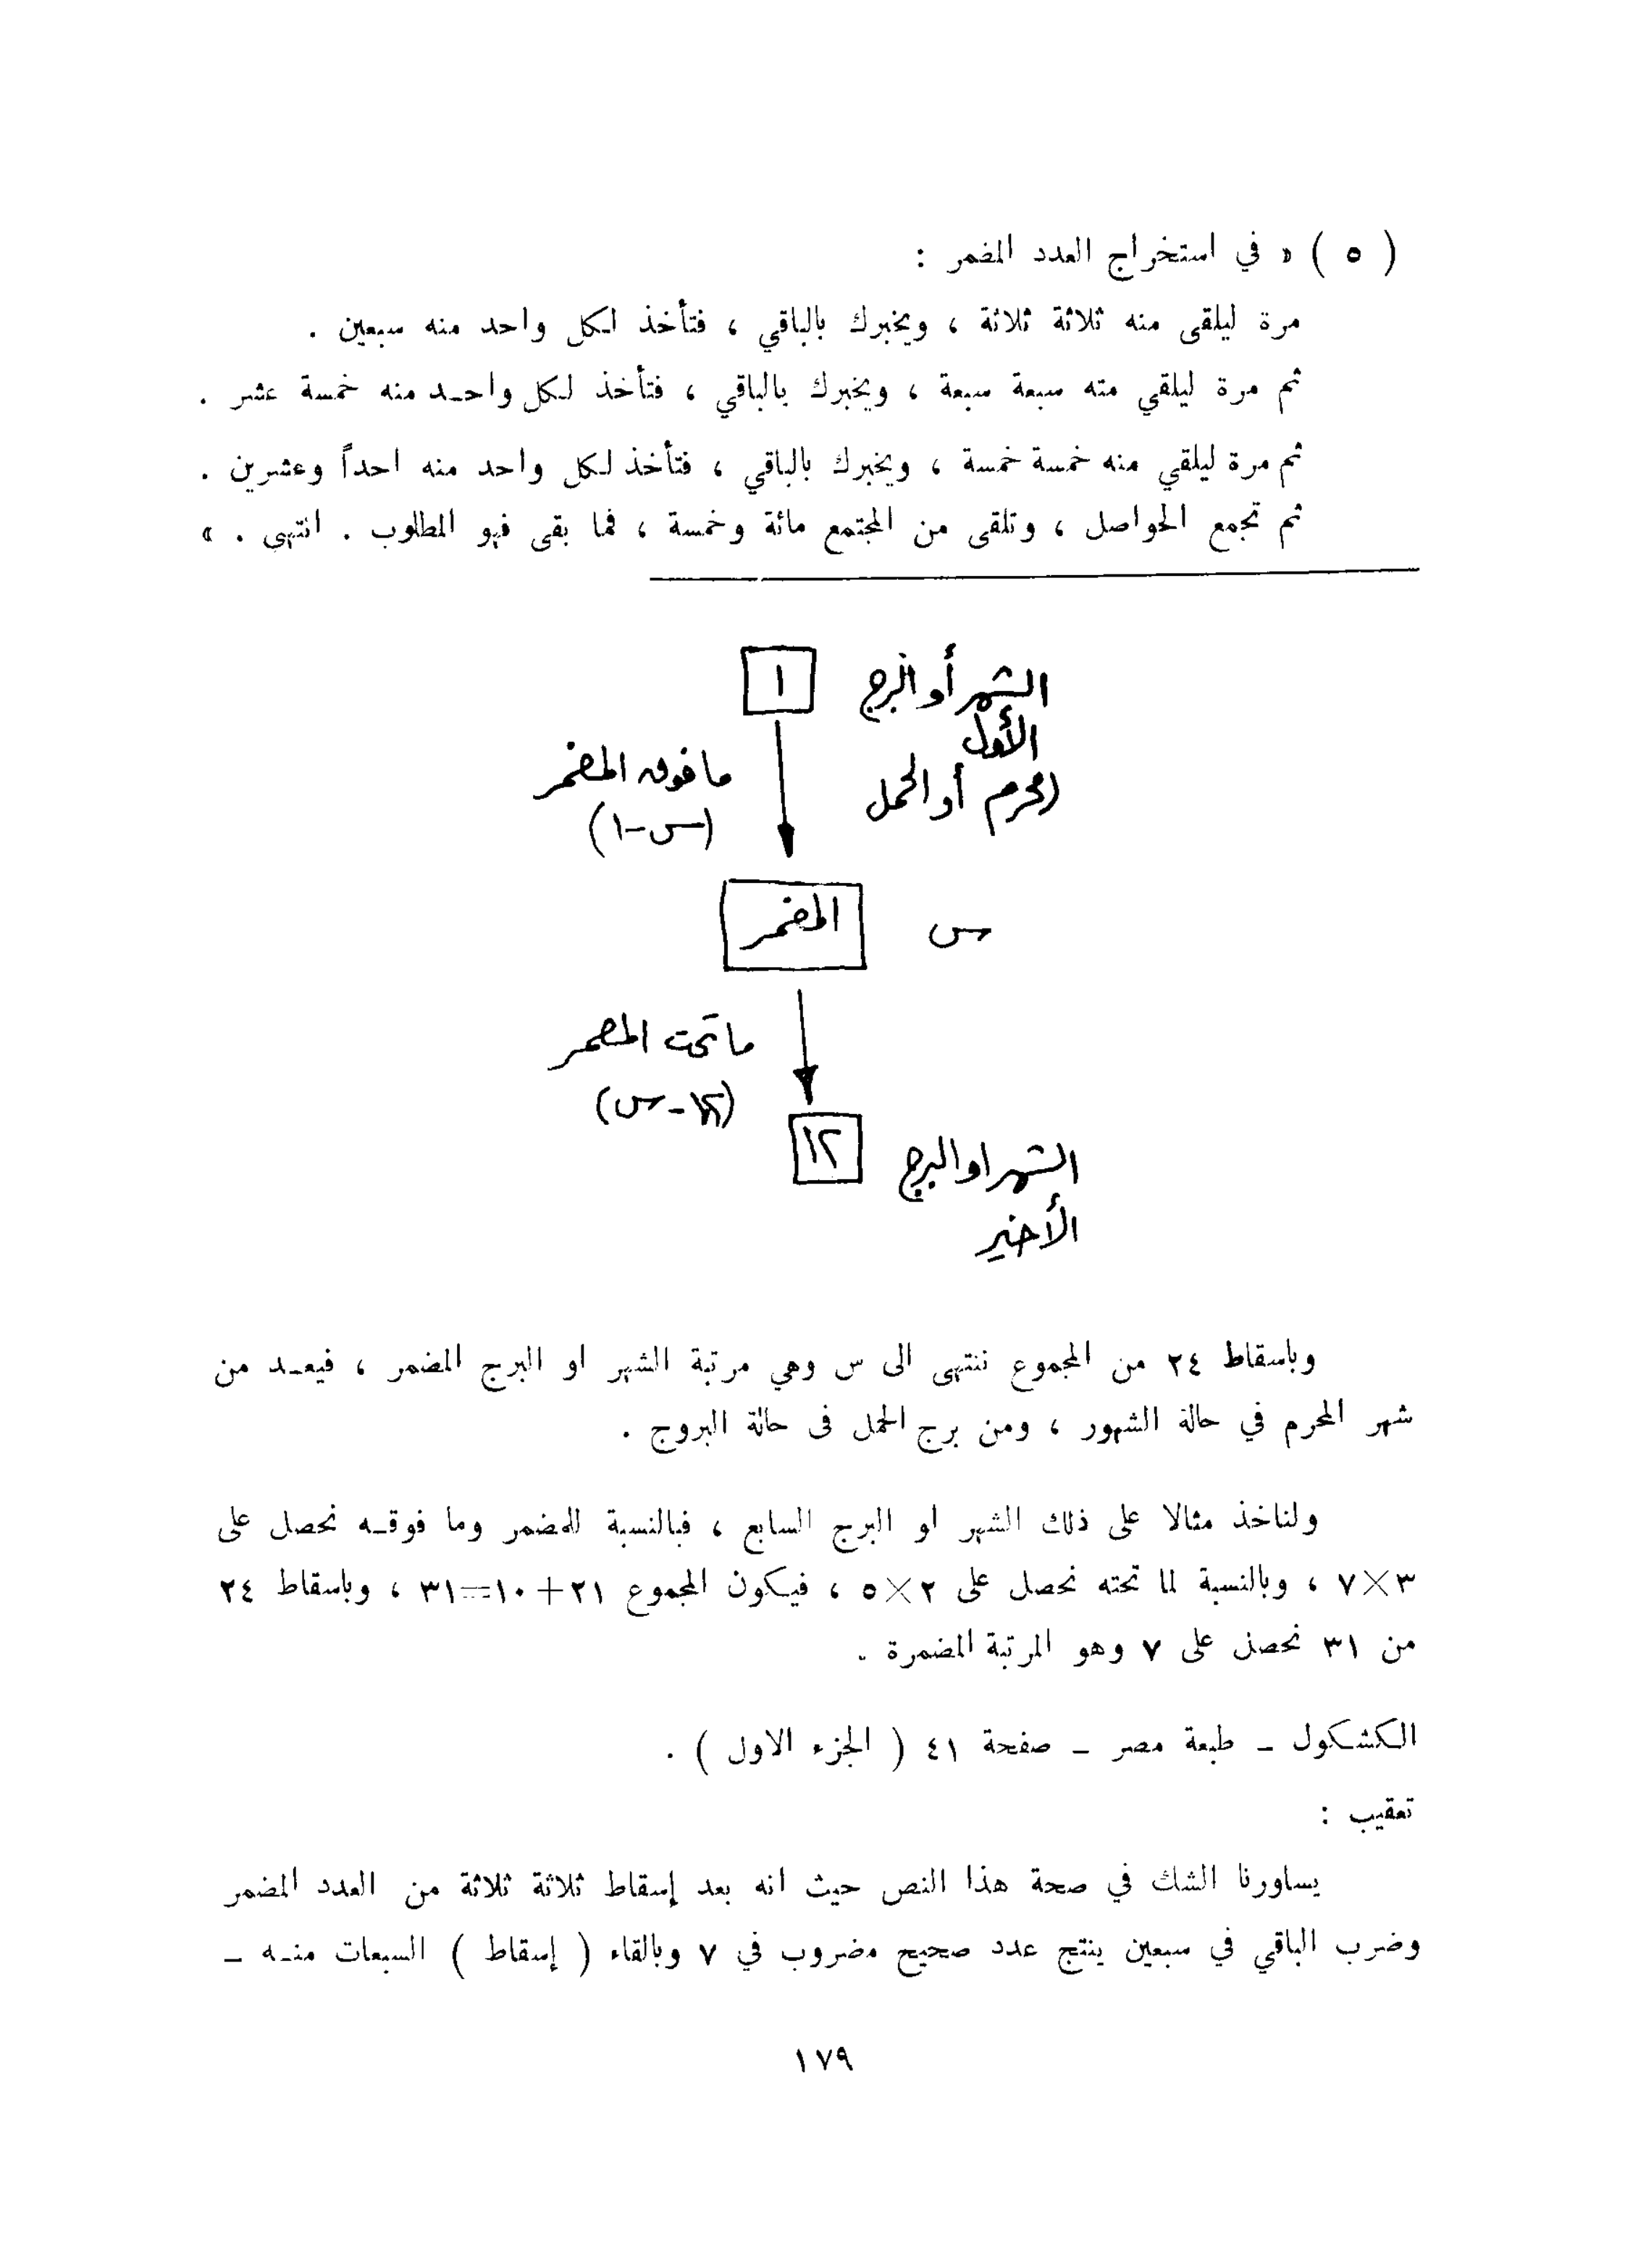 ( ٥ ) « في استخراج العدد المضمر :
مرة ليلقى منه ثلاثة ثلاثة ، ويخبرك بالباقي ، فتأخذ لكل واحد منه سبعين .
ثم مرة ليلقي منه سبعة سبعة ، ويخبرك بالباقي ، فتأخذ لكل واحد منه خمسة عشر .
ثم مرة ليلقي منه خمسة خمسة ، ويخبرك بالباقي ، فتأخذ لكل واحد منه احداً وعشرين .
ثم تجمع الحواصل ، وتلقى من المجتمع مائة وخمسة ، فما بقى فهو المطلوب . انتهى . »
١ الشهر أو البرج
الأول
ما فوق المضمر (محرم أو الحمل
(س-١)
المضمر س
ما تحت المضمر
(١٢-س)
١٢ الشهر او البرج
الأخير
وباسقاط ٢٤ من المجموع ننتهى الى س وهي مرتبة الشهر او البرج المضمر ، فيعد من
شهر المحرم في حالة الشهور ، ومن برج الحمل فى حالة البروج .
ولناخذ مثالا على ذلك الشهر او البرج السابع ، فبالنسبة للمضمر وما فوقه نحصل على
٣×٧ ، وبالنسبة لما تحته نحصل على ٢×٥ ، فيكون المجموع ٢١+١٠=٣١ ، وباسقاط ٢٤
من ٣١ نحصل على ٧ وهو المرتبة المضمرة .
الكشكول – طبعة مصر – صفحة ٤١ ( الجزء الاول ) .
تعقيب :
يساورنا الشك في صحة هذا النص حيث انه بعد إسقاط ثلاثة ثلاثة من العدد المضمر
وضرب الباقي في سبعين ينتج عدد صحيح مضروب في ٧ وبالقاء ( إسقاط ) السبعات منه –
١٧٩